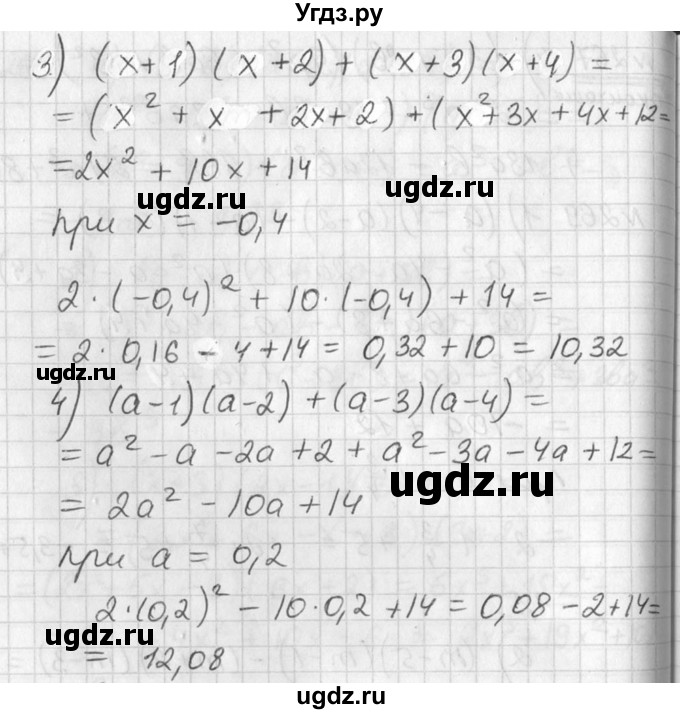 Угдз.ру
3) (x+1)(x+2)+(x+3)(x+4)=
=(x²+x+2x+2)+(x²+3x+4x+12=
=2x²+10x+14
ugdz.ru
ugdz.ru
при x = -0,4
2·(-0,4)²+10·(-0,4)+14=
=2·0,16-4+14=0,32+10=10,32
ugdz.ru
4) (a-1)(a-2)+(a-3)(a-4)=
=a²-a-2a+2+a²-3a-4a+12=
ugdz.ru
=2a²-10a+14
при a = 0,2
2·(0,2)²-10·0,2+14=0,08-2+14=
ugdz.ru
= 12,08
ugdz.ru